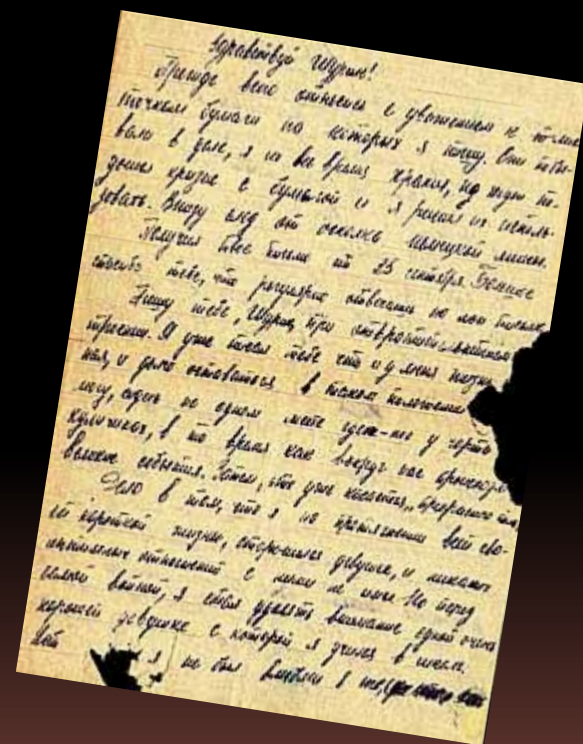 Здравствуй Шурик!
Прежде всего отнесись с уважением к
точкам бумаги на которых я пишу. Они побы-
вали в деле, я их все время хранил, но
кризис с бумагой и я решил их исполь-
зовать. Внизу след от осколка немецкой мины.
Получил твое письмо от 25 сентября. Большое
спасибо тебе, что регулярно отвечаешь на мои письма.
Пишу тебе, Шурик, при отвратительнейшем
Я уже писал тебе что и у меня
и долго оставаться в таком положении
могу, сидеть на одном месте где-то у черта
куличиках, в то время как вокруг нас происходят
великие события. Затем, что уже касается, прекрасного
Дело в том, что я на протяжении всей сво-
ей короткой жизни, сторонился девушек, и никаких
отношений с ними не имел. Но перед
самой войной, я стал уделять внимание одной очень
хорошей девушке с которой я учился в школе.
я не был влюблен в нее,